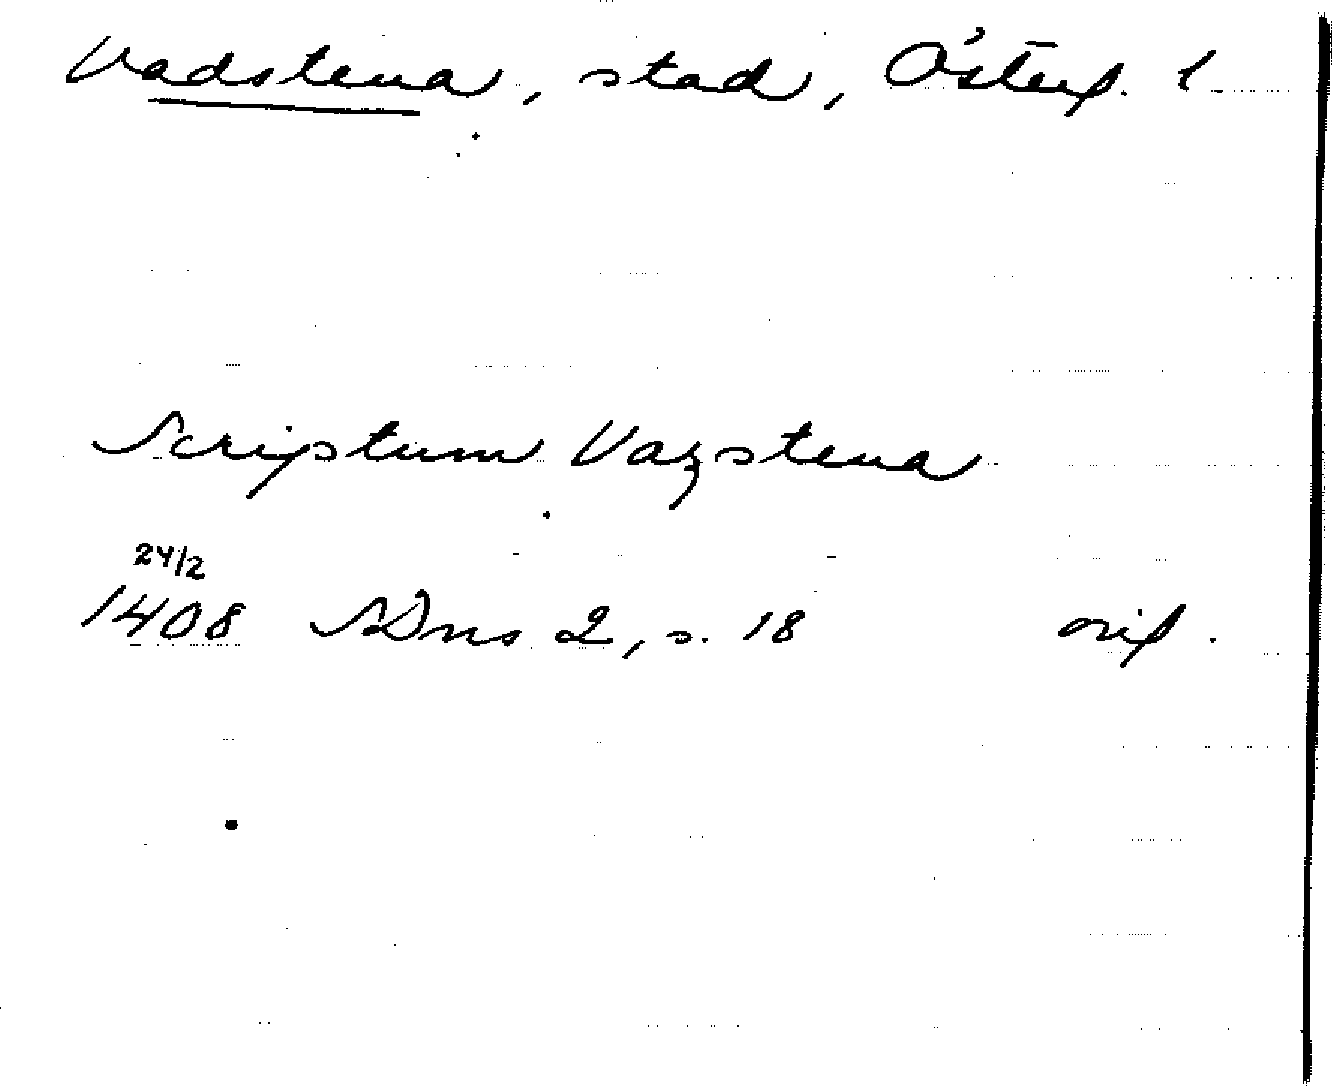 Vadstena, stad, Österg. l
Scriptum Vazstena
24/2
1408 SDns 2, s. 18 orig.